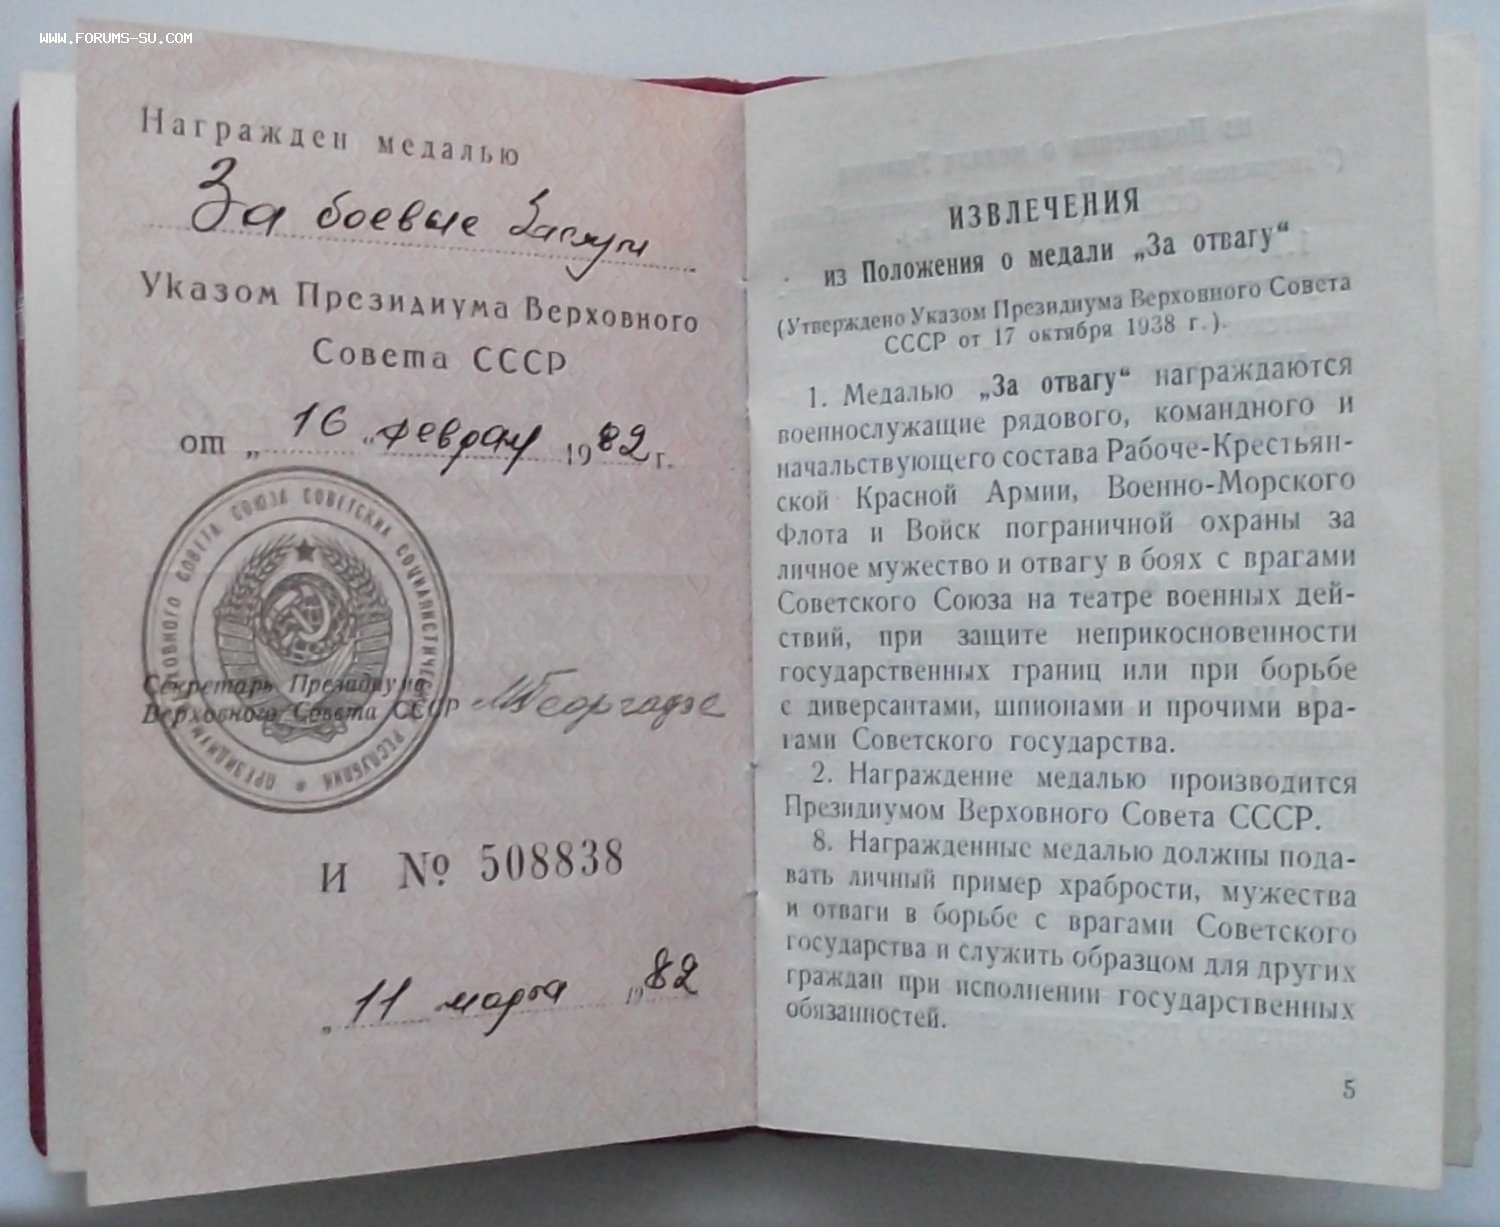 WWW.FORUMS-SU.COM
Награжден медалью
За боевые Заслуги
Указом Президиума Верховного
Совета СССР
от „ 16 " февраля 1982 г.
ПРЕЗИДИУМ ВЕРХОВНОГО СОВЕТА СОЮЗА СОВЕТСКИХ СОЦИАЛИСТИЧЕСКИХ РЕСПУБЛИК
Секретарь Президиума
Верховного Совета СССР М Георгадзе
И № 508838
„ 11 марта 1982
ИЗВЛЕЧЕНИЯ
из Положения о медали „За отвагу“
(Утверждено Указом Президиума Верховного Совета
СССР от 17 октября 1938 г.).
1. Медалью „За отвагу“ награждаются
военнослужащие рядового, командного и
начальствующего состава Рабоче-Крестьян-
ской Красной Армии, Военно-Морского
Флота и Войск пограничной охраны за
личное мужество и отвагу в боях с врагами
Советского Союза на театре военных дей-
ствий, при защите неприкосновенности
государственных границ или при борьбе
с диверсантами, шпионами и прочими вра-
гами Советского государства.
2. Награждение медалью производится
Президиумом Верховного Совета СССР.
8. Награжденные медалью должны пода-
вать личный пример храбрости, мужества
и отваги в борьбе с врагами Советского
государства и служить образцом для других
граждан при исполнении государственных
обязанностей.
5